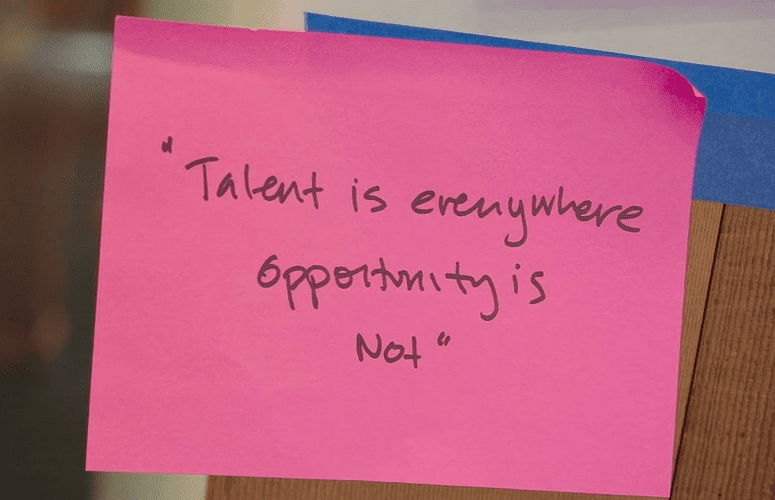 "Talent is everywhere
opportunity is
Not"